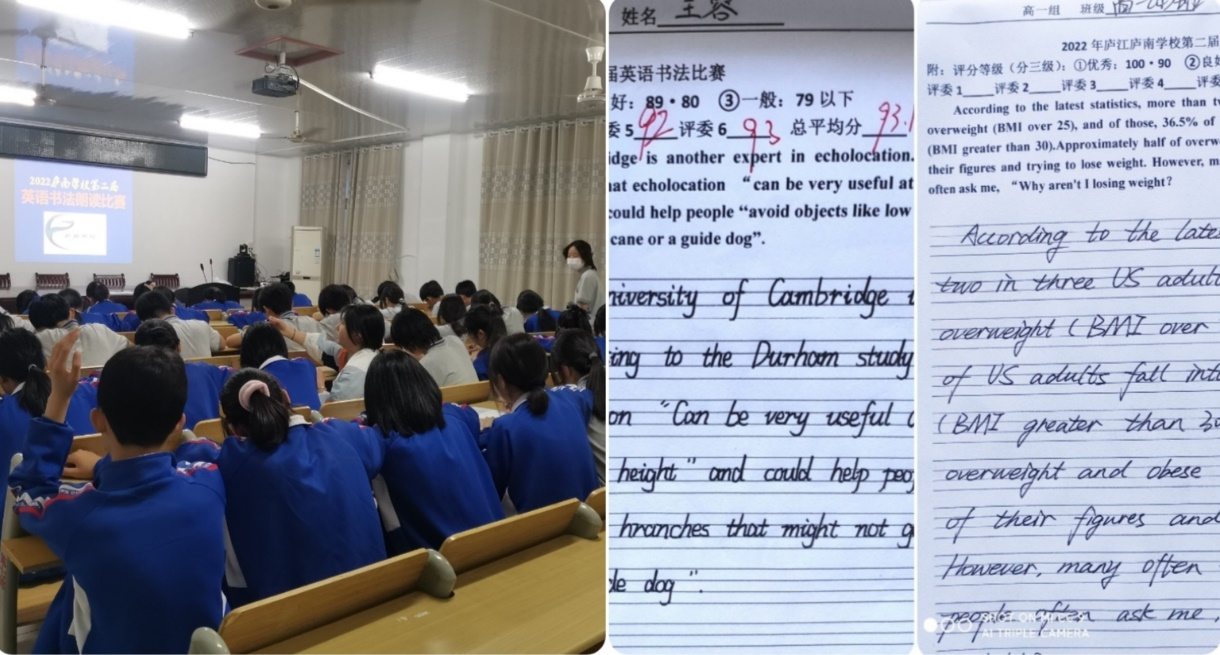 2022庐南学校第二届
英语书法朗读比赛
姓名 王容
届英语书法比赛
好：89-80 ③一般：79 以下
委 5 92 评委 6 93 总平均分 93.1
idge is another expert in echolocation.
hat echolocation “can be very useful at
could help people “avoid objects like low
cane or a guide dog”.
niversity of Cambridge
ing to the Durham study
on "Can be very useful
height" and could help peo
hranches that might not g
de dog ".
高一组 班级
2022 年庐江庐南学校第二届
附：评分等级（分三级）：①优秀：100-90 ②良好
评委 1 评委 2 评委 3 评委 4 评委
According to the latest statistics, more than tw
overweight (BMI over 25), and of those, 36.5% of
(BMI greater than 30).Approximately half of overw
their figures and trying to lose weight. However, m
often ask me, “Why aren't I losing weight?
According to the late
two in three US adult
overweight ( BMI over
of US adults fall int
( BMI greater than 30
overweight and obese
of their figures and
However, many often
people often ask me,
SHOT ON MI CC 9
AI TRIPLE CAMERA